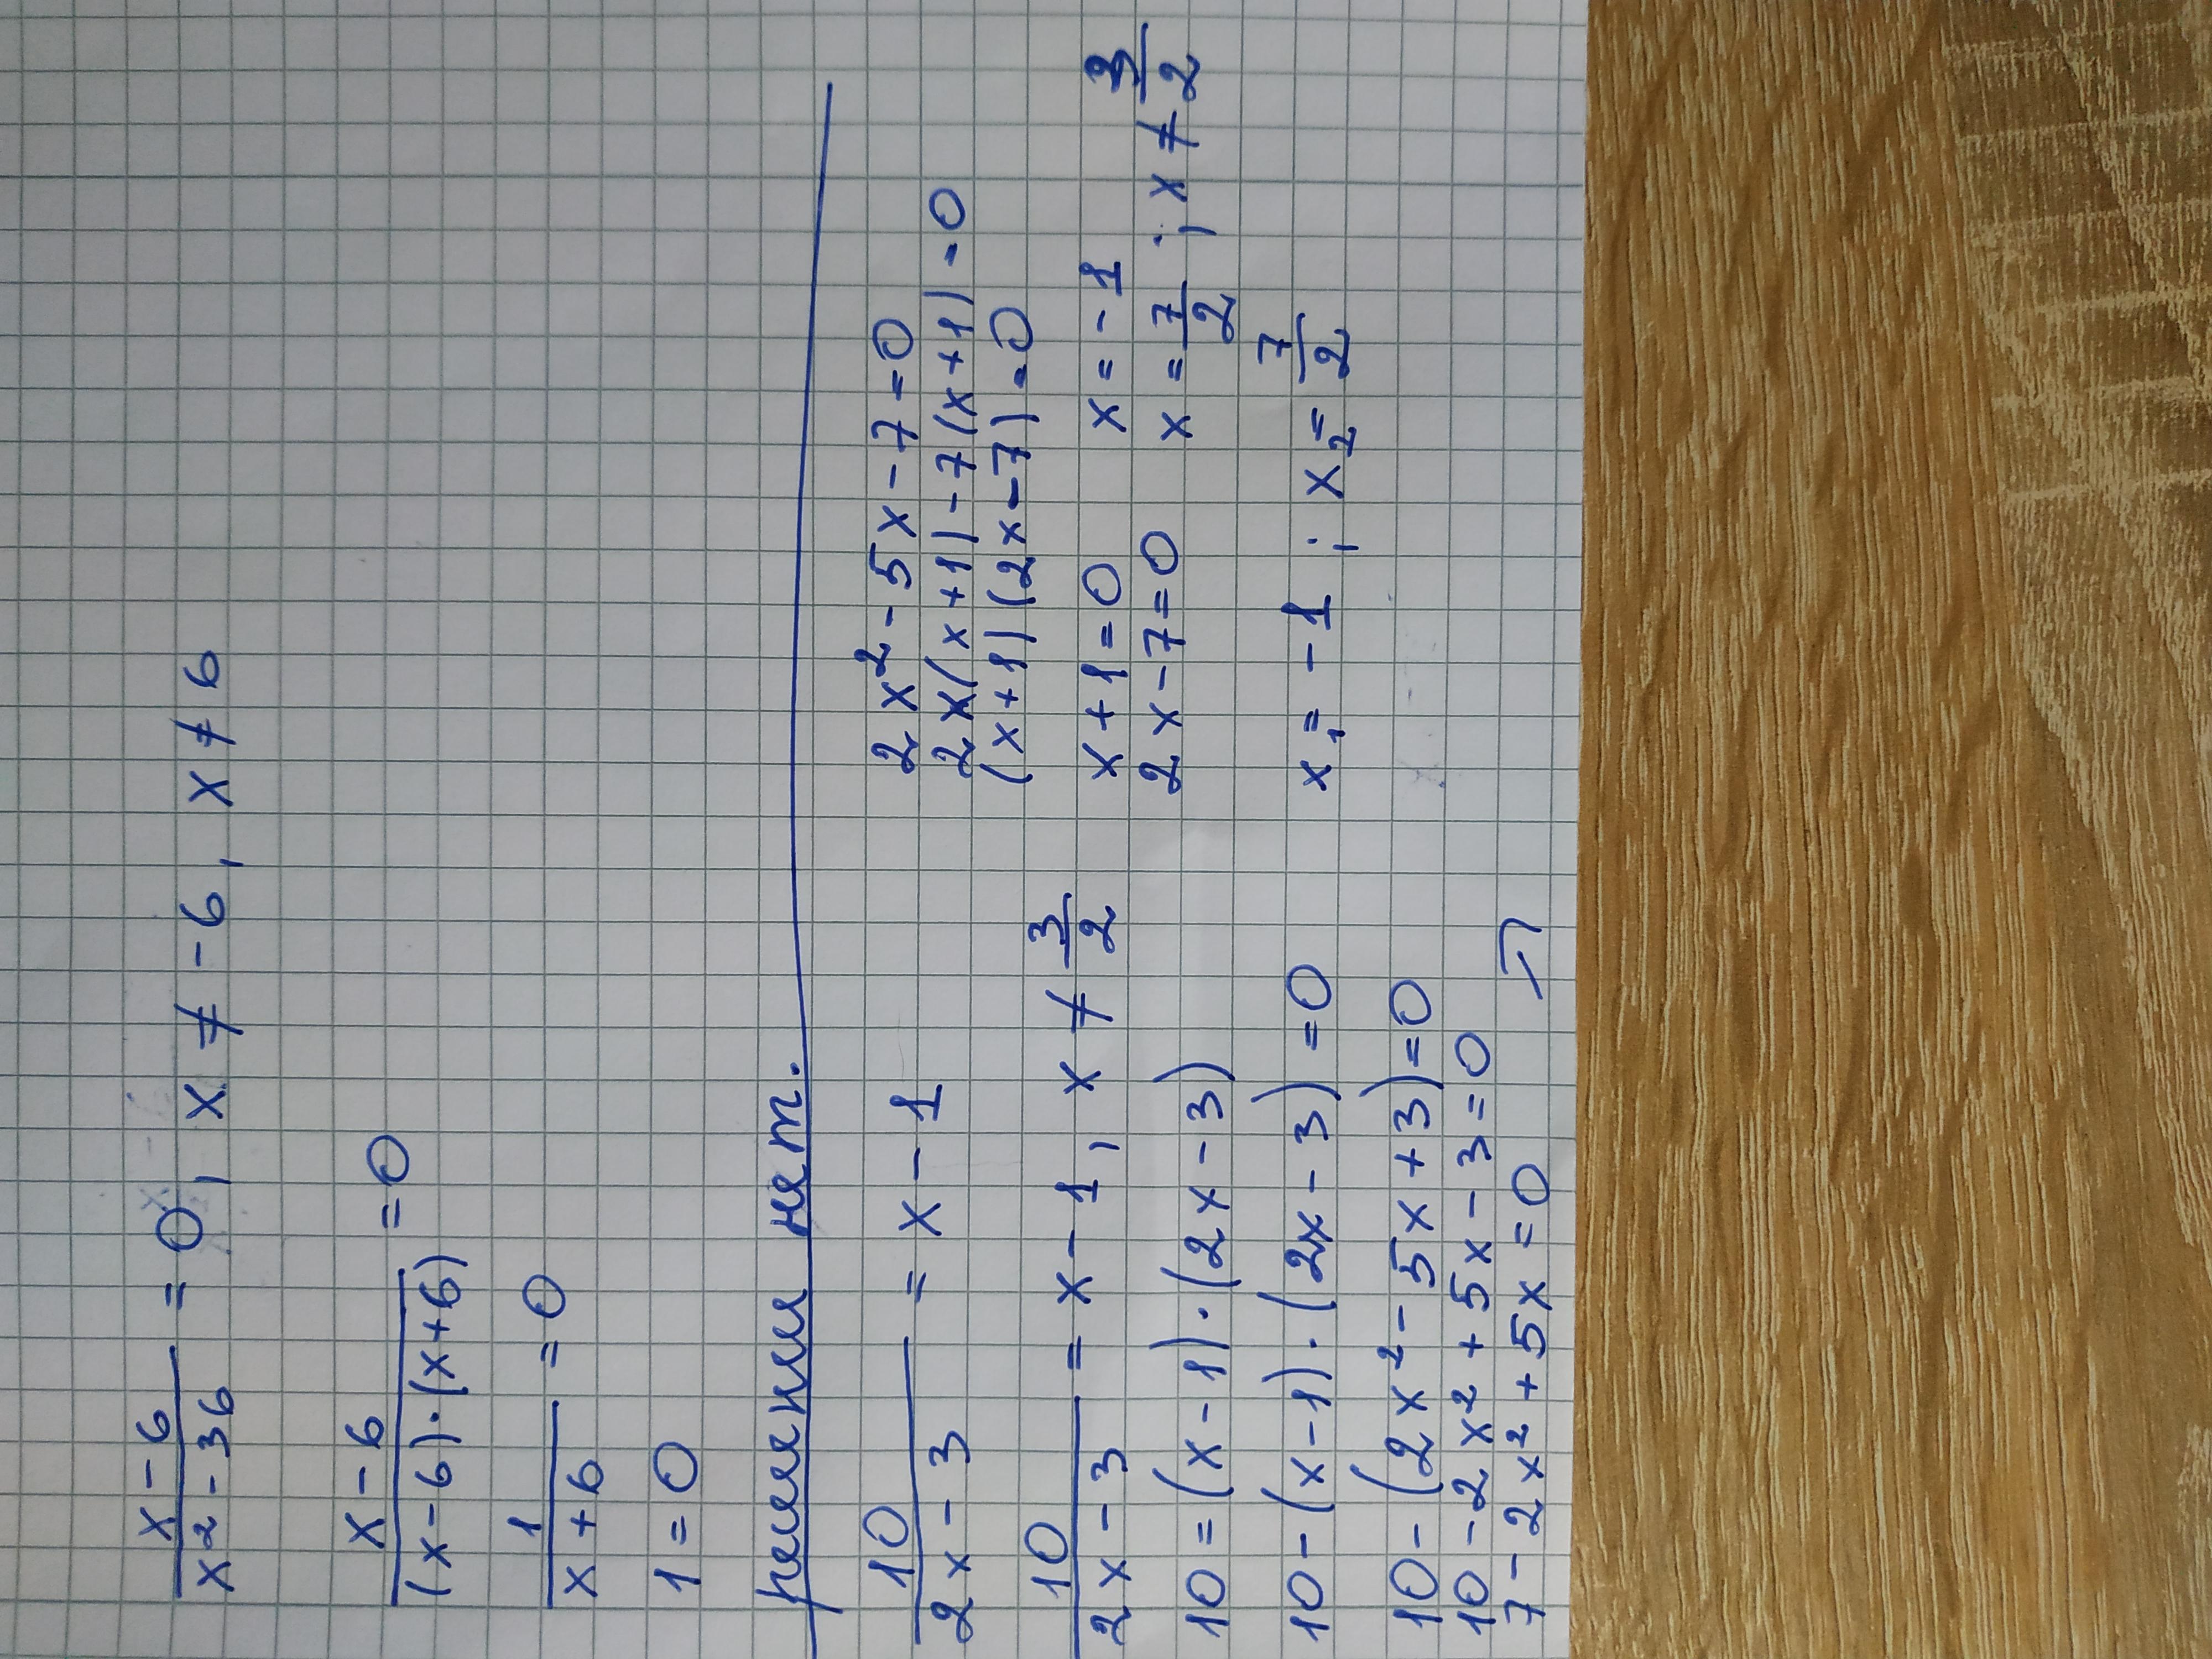 x-6/x²-36 = 0, x ≠ -6, x ≠ 6
x-6/(x-6)·(x+6) = 0
1/x+6 = 0
1 = 0
решений нет.
10/2x-3 = x-1
10/2x-3 = x-1, x ≠ 3/2
10 = (x-1)·(2x-3)
10-(x-1)·(2x-3) = 0
10-(2x²-5x+3) = 0
10-2x²+5x-3 = 0
7-2x²+5x = 0
2x²-5x-7 = 0
2x(x+1)-7(x+1) = 0
(x+1)(2x-7) = 0
x+1 = 0 x = -1
2x-7 = 0 x = 7/2 ; x ≠ 3/2
x₁ = -1 ; x₂ = 7/2